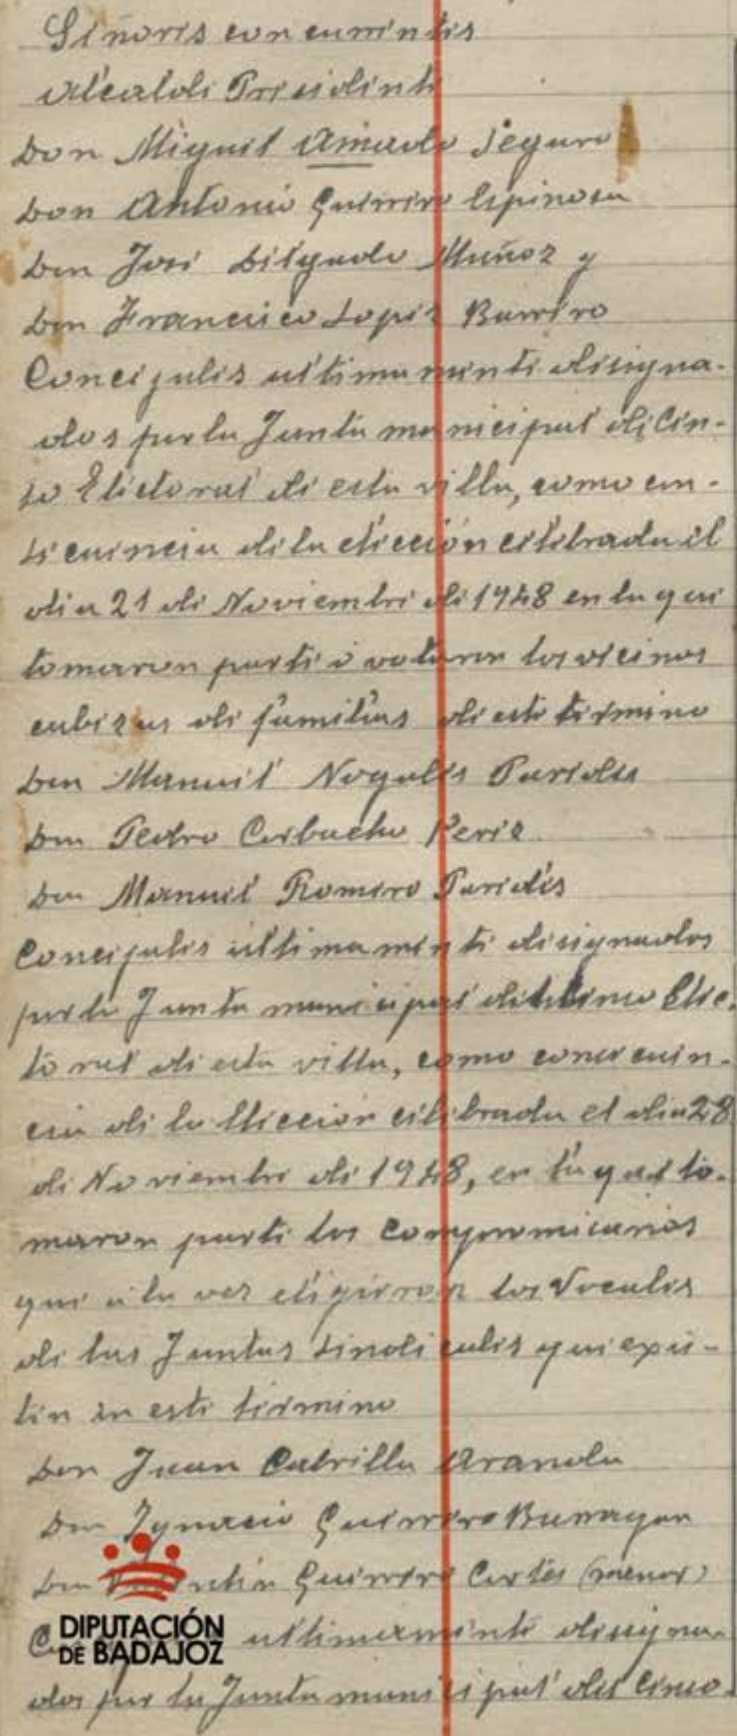 Señores concurrentes
Alcalde Presidente
Don Miguel Amado Seguro
Don Antonio Guerrero Espinosa
Don José Delgado Muñoz y
Don Francisco Lopez Barrero
Concejales ultimamente designa-
dos por la Junta municipal del Cen-
so Electoral de esta villa, como con-
secuencia de la elección celebrada el
dia 21 de Noviembre de 1948 en la que
tomaron parte o votaron los vecinos
cabezas de familias de este término
Don Manuel Nogales Paredes
Don Pedro Corbacho Perez
Don Manuel Romero Paredes
Concejales ultimamente designados
por la Junta municipal del Censo Elec-
toral de esta villa, como consecuen-
cia de la elección celebrada el dia 28
de Noviembre de 1948, en la que to-
maron parte los Compromisarios
que a la vez eligieron los Vocales
de las Juntas Sindicales que exis-
ten en este término
Don Juan Cabrilla Aranda
Don Ignacio Guerrero Barragan
Don Guerrero Cortés (menor)
DIPUTACIÓN
DE BADAJOZ
ultimamente designa-
dos por la Junta municipal del Censo